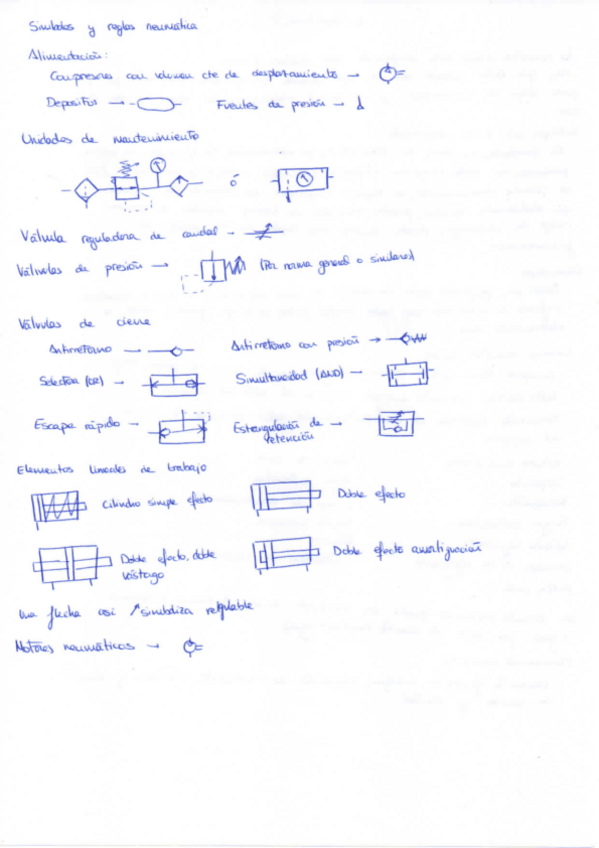 Simbolos y reglas neumática
Alimentación:
Compresores con volumen cte de desplazamiento →
Depositos → Fuentes de presión →
Unidades de mantenimiento
ó
Válvula reguladora de caudal -
Válvulas de presión → (Por norma general o similares)
Válvulas de cierre
Antirretorno → Antirretorno con presión →
Selectora (OR) → Simultaneidad (AND) →
Escape rápido → Estrangulación de →
retención
Elementos lineales de trabajo
Cilindro simple efecto Doble efecto
Doble efecto, doble Doble efecto amortiguación
vástago
Una flecha asi ↗ simboliza regulable
Motores neumáticos →